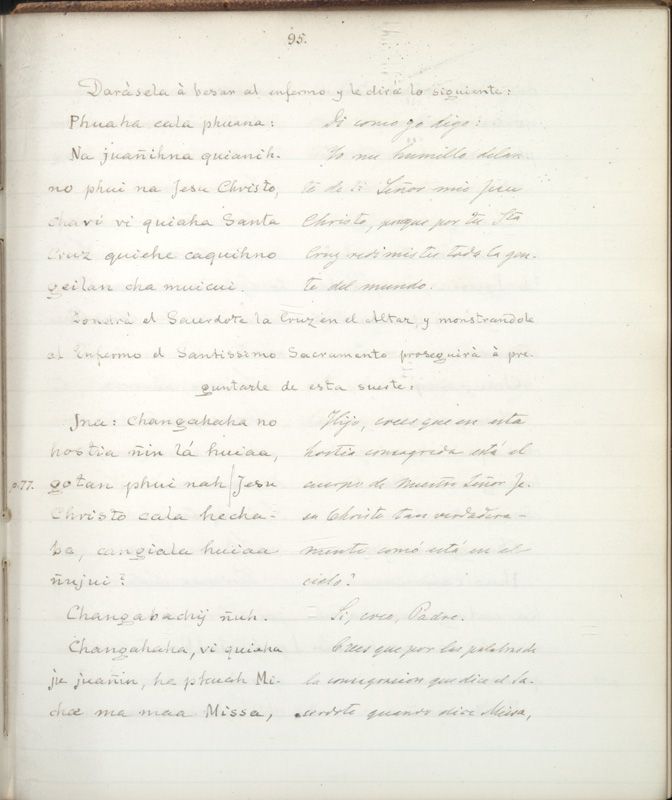 95.
Daràsela à besar al enfermo y le dirà lo siguiente:
Phuaha cala phuana:
Di como yo digo:
Na juañihna quianih-
no phui na Jesu Christo,
chaví vi quiaha Santa
Cruz quiche caquihno
geilan cha muicui.
Yo me humillo delan-
te de ti Señor mio Jesu
Christo, porque por tu Sta
Cruz redimistes toda la gen-
te del mundo.
Pondrà el Sacerdote la Cruz en el Altar, y monstrandole
al Enfermo el Santissimo Sacramento proseguirà à pre-
guntarle de esta suerte:
Jna: Changahaha no
hostia ñin lá huiaa,
p.77. gotan phui nah/Jesu
Christo cala hecha-
ba, cangiala huiaa
ñujui?
Hijo, crees que en esta
hostia consagrada está el
cuerpo de Nuestro Señor Je-
su Christo tan verdadera-
mente comó está en el
cielo?
Changabachij ñuh.
= Si, creo, Padre.
Changahaha, vi quiaha
jie juañin, he phuah Mi-
chæ ma maa Missa,
Crees que por las palabras de
la consagracion que dice el Sa-
cerdote quando dice Missa,